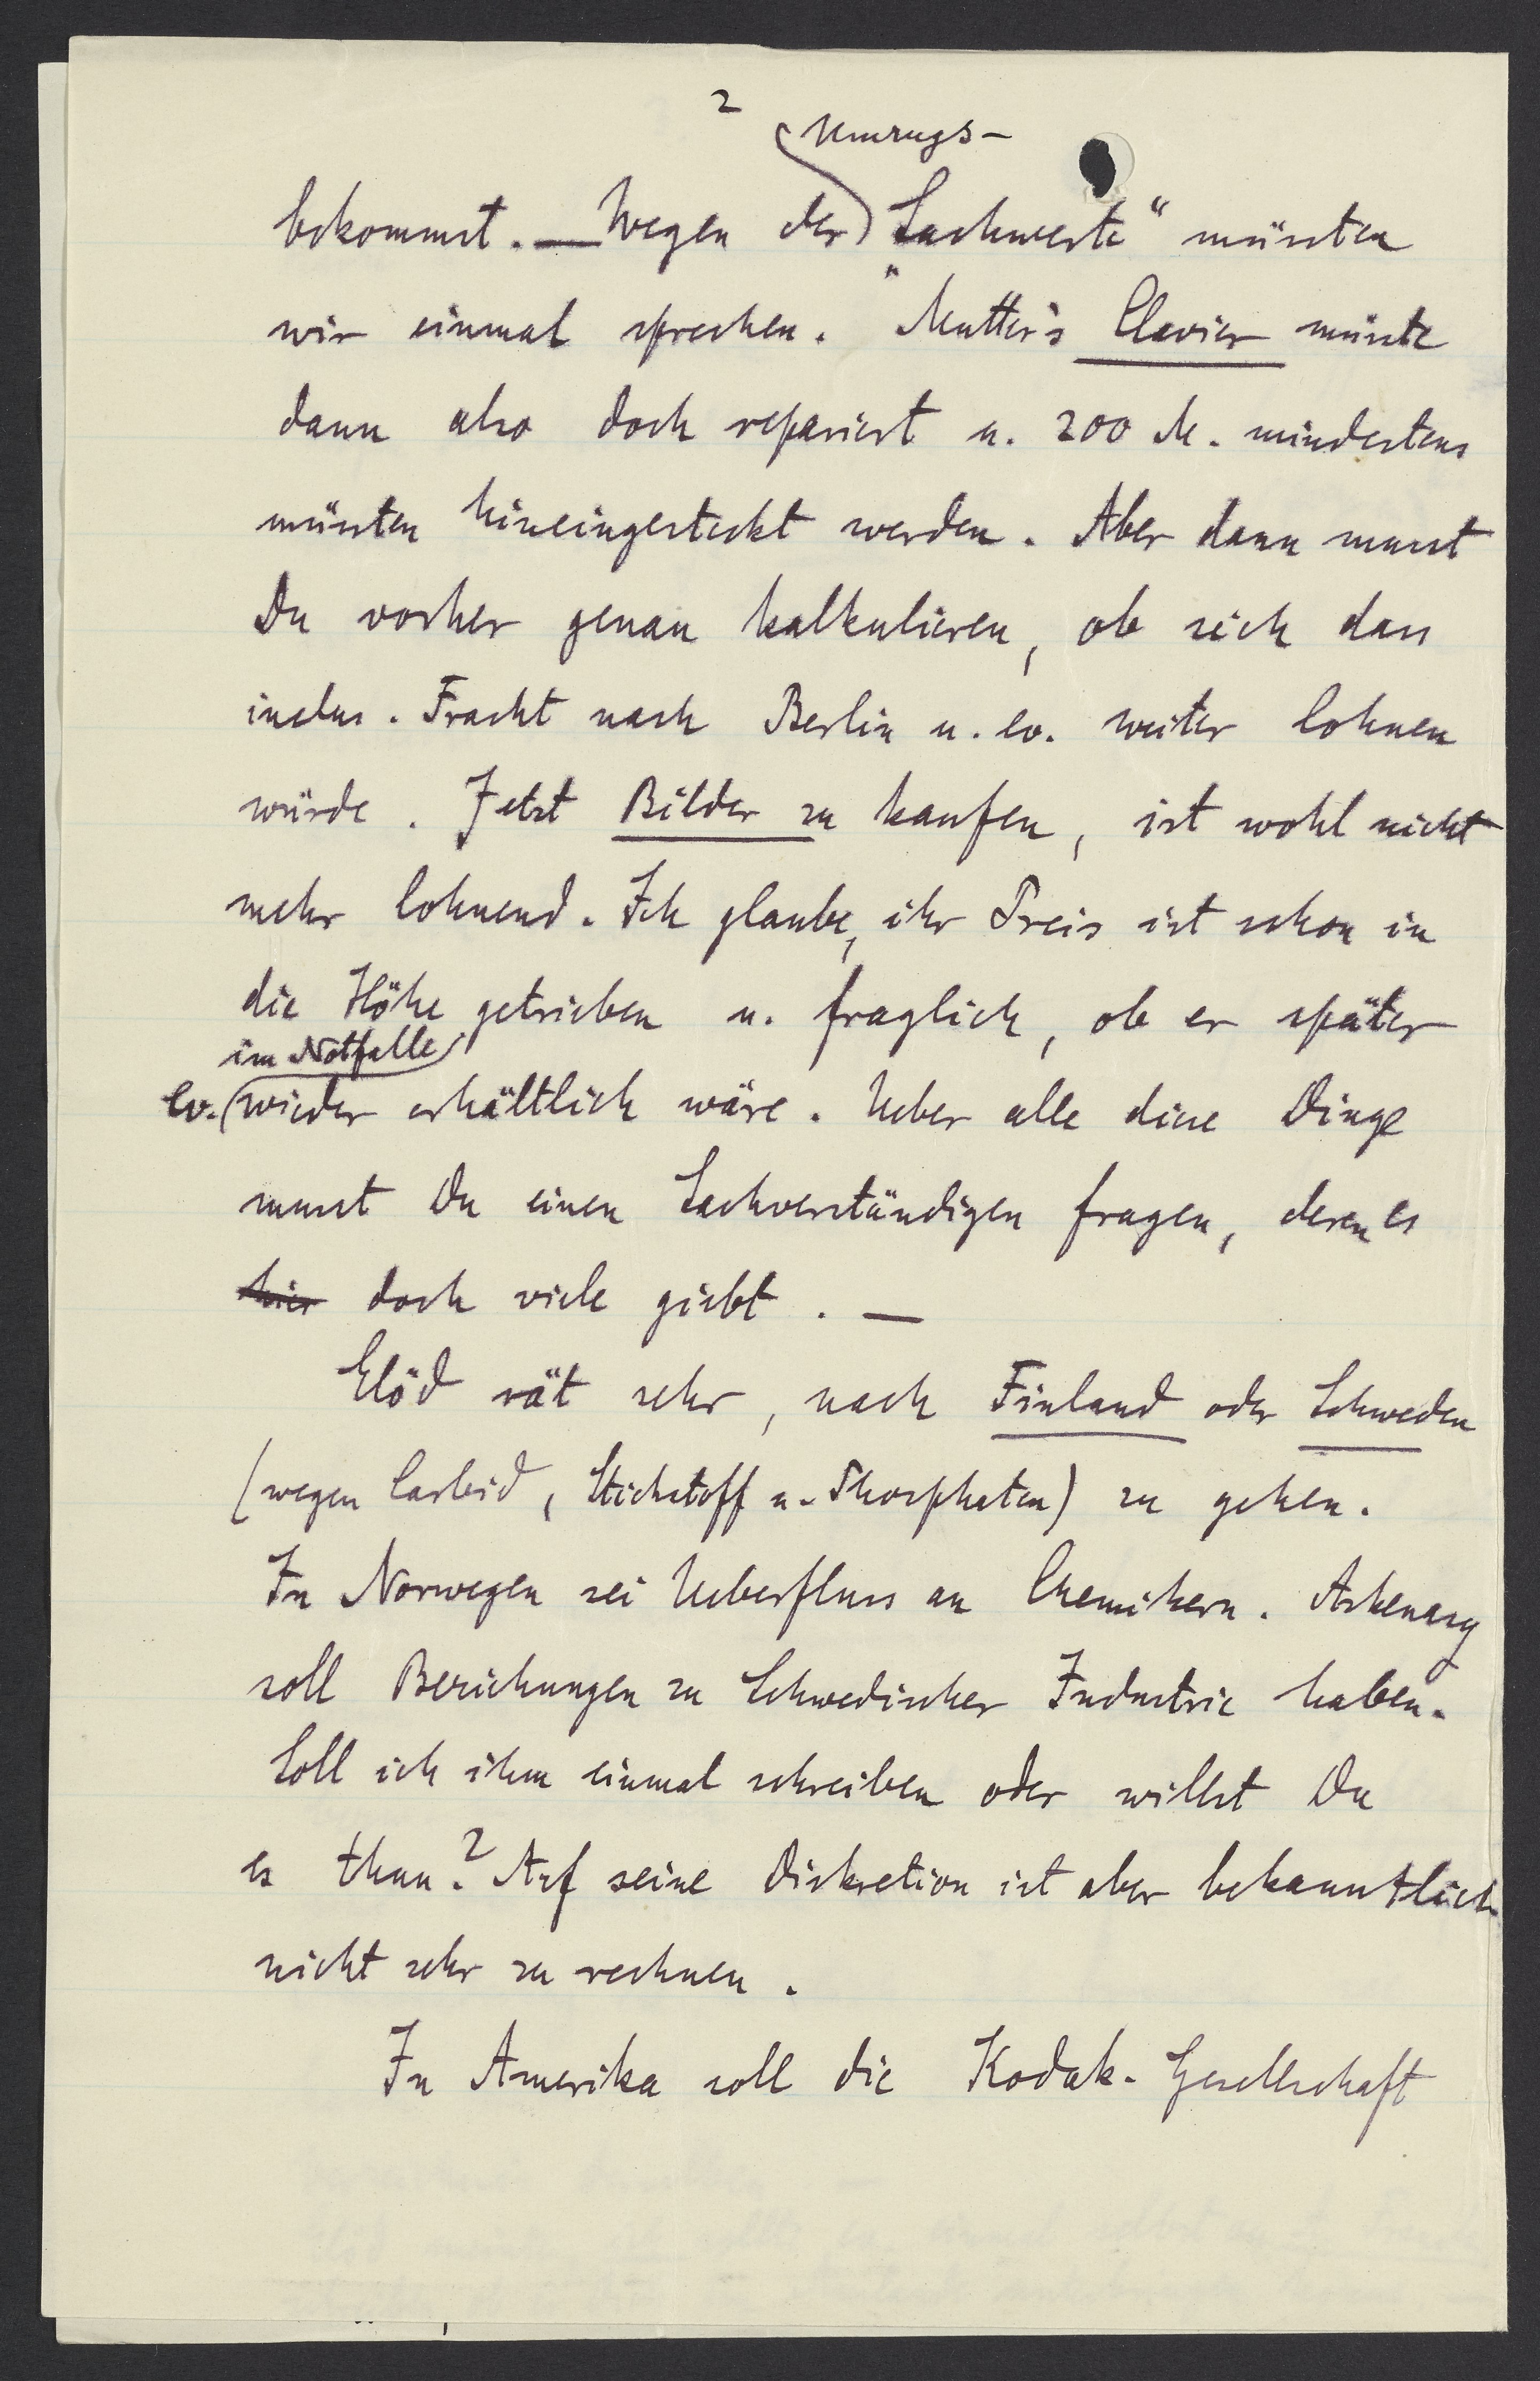 2
Umzugs-
bekommt. — Wegen der „Sachwerte“ müssten
wir einmal sprechen. Mutter's Clavier müsste
dann also doch repariert u. 200 M. mindestens
müssten hineingesteckt werden. Aber dann musst
Du vorher genau kalkulieren, ob sich dass
inclus. Fracht nach Berlin u. ev. weiter lohnen
würde. Jetzt Bilder zu kaufen, ist wohl nicht
mehr lohnend. Ich glaube, ihr Preis ist schon in
die Höhe getrieben u. fraglich, ob er später
im Notfalle
ev. wieder erhältlich wäre. Ueber alle diese Dinge
musst Du einen Sachverständigen fragen, deren es
hier doch viele giebt. —
Elöd rät sehr, nach Finland oder Schweden
(wegen Carbid, Stickstoff u. Phosphaten) zu gehen.
In Norwegen sei Ueberfluss an Chemikern. Askenasy
soll Beziehungen zu Schwedischer Industrie haben.
Soll ich ihm einmal schreiben oder willst Du
es thun? Auf seine Diskretion ist aber bekanntlich
nicht sehr zu rechnen.
In Amerika soll die Kodak-Gesellschaft